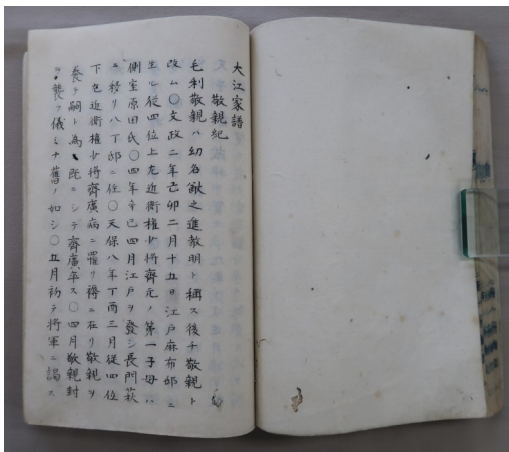 大江家譜
敬親紀
毛利敬親ハ幼名猷之進教明ト稱ス後チ敬親ト
改ム〇文政二年己卯二月十五日江戸麻布邸ニ
生ル從四位上左近衛權少將齊元ノ第一子母ハ
側室原田氏〇四年辛巳四月江戸ヲ發シ長門萩
ニ移リ八丁邸ニ住〇天保八年丁酉三月從四位
下左近衛權少將齊廣病ニ罹リ褥ニ在リ敬親ヲ
養テ嗣ト為ス既ニシテ齊廣卒ス〇四月敬親封
ヲ襲ク儀ミナ舊ノ如シ〇五月初テ將軍ニ謁ス